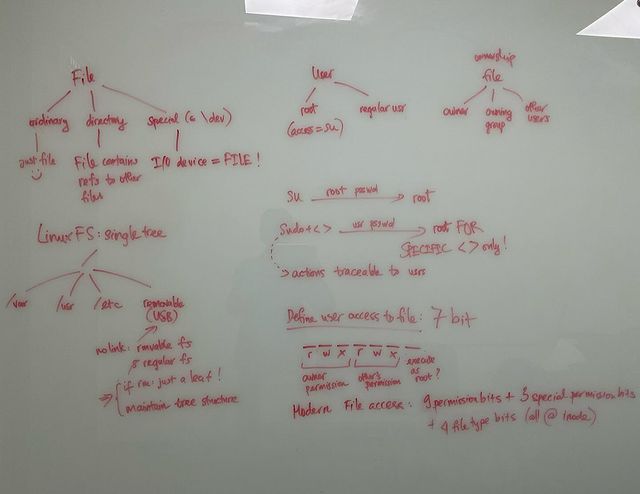 File
ordinary directory special (∈ \dev)
just file :) File contains refs to other files I/O device = FILE !
User
root regular usr
(access = su)
ownership
file
owner owning group other users
su root passwd root
sudo + < > usr passwd root FOR
SPECIFIC < > only!
actions traceable to users
Linux FS: single tree
/var /usr /etc removable
(USB)
no link: rmvable fs
& regular fs
if rm: just a leaf!
maintain tree structure
Define user access to file: 7 bit
r w x r w x
owner permission other's permission execute as root?
Modern File access: 9 permission bits + 3 special permission bits
+ 4 file type bits (all @ inode)